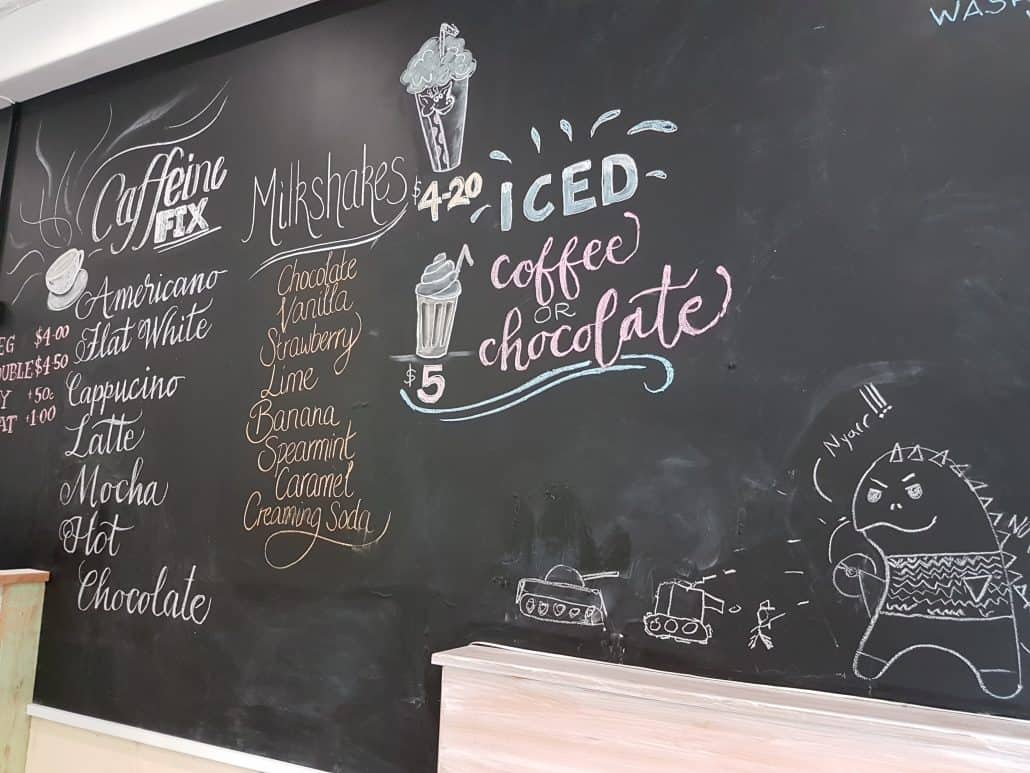 Caffeine
FIX
Americano
Flat White
$4.00
$4.50
+50c
+1.00
Cappucino
Latte
Mocha
Hot
Chocolate
Milkshakes
$4-20
Chocolate
Vanilla
Strawberry
Lime
Banana
Spearmint
Caramel
Creaming Soda
ICED
coffee
OR
chocolate
$5
Nyarr!!!